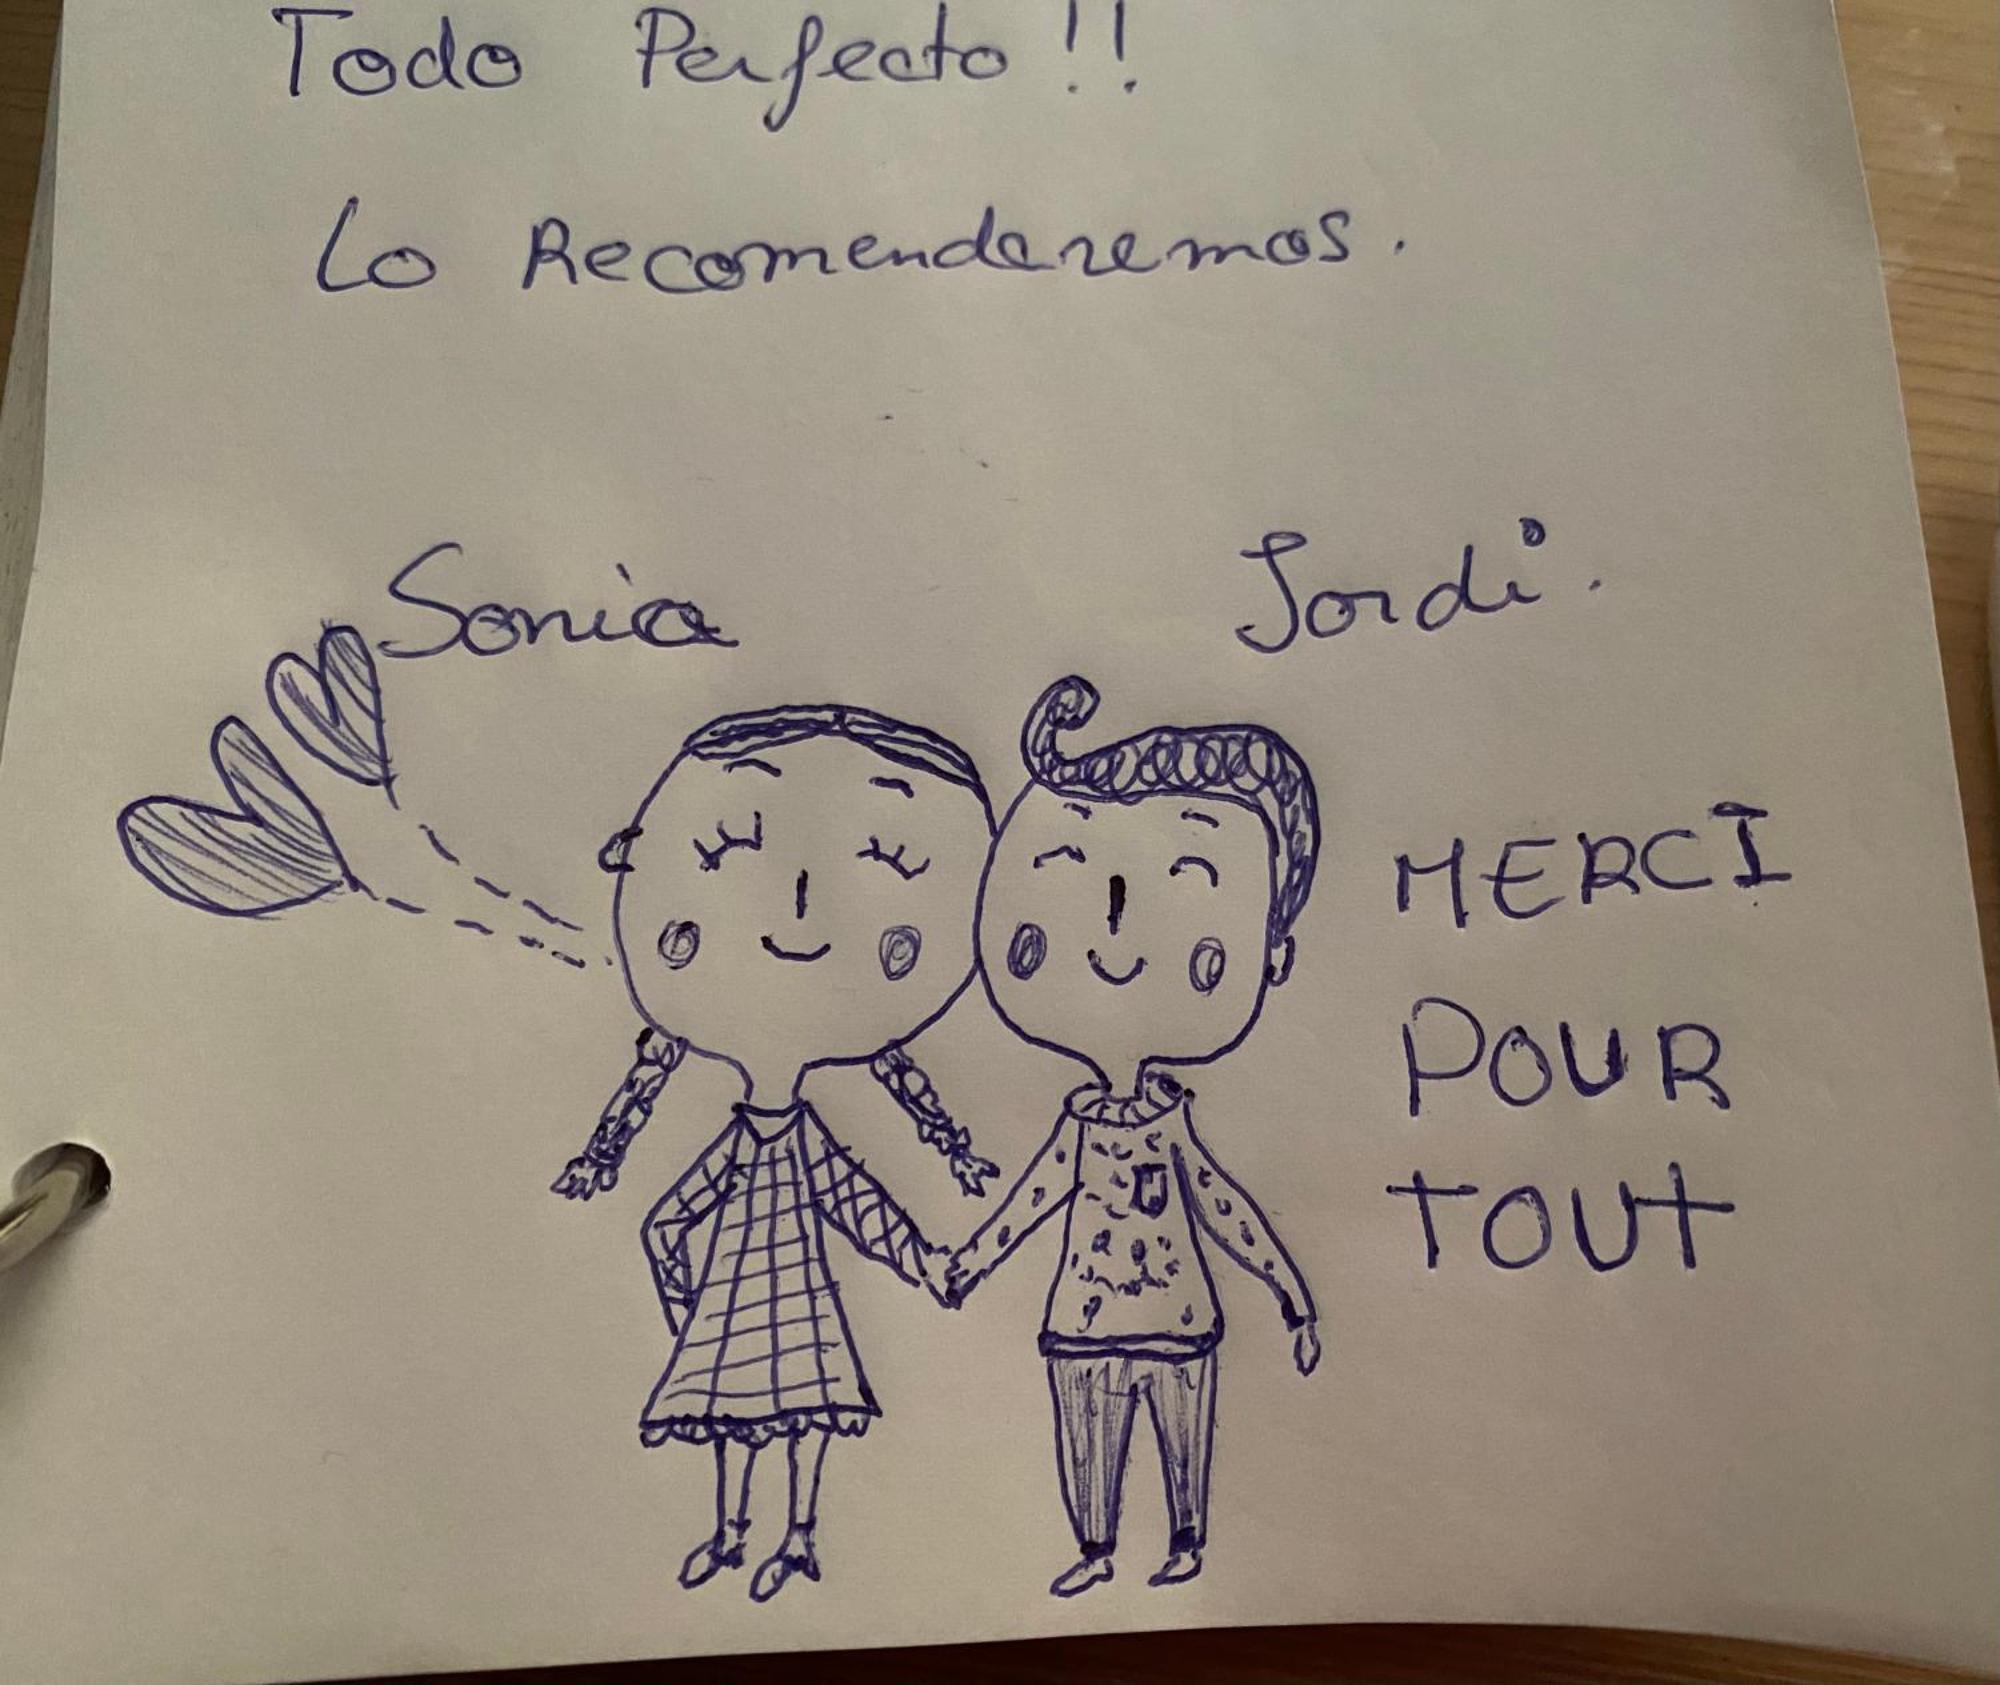 Todo Perfecto!!
Lo Recomendaremos.
Sonia Jordi.
MERCI
POUR
TOUT